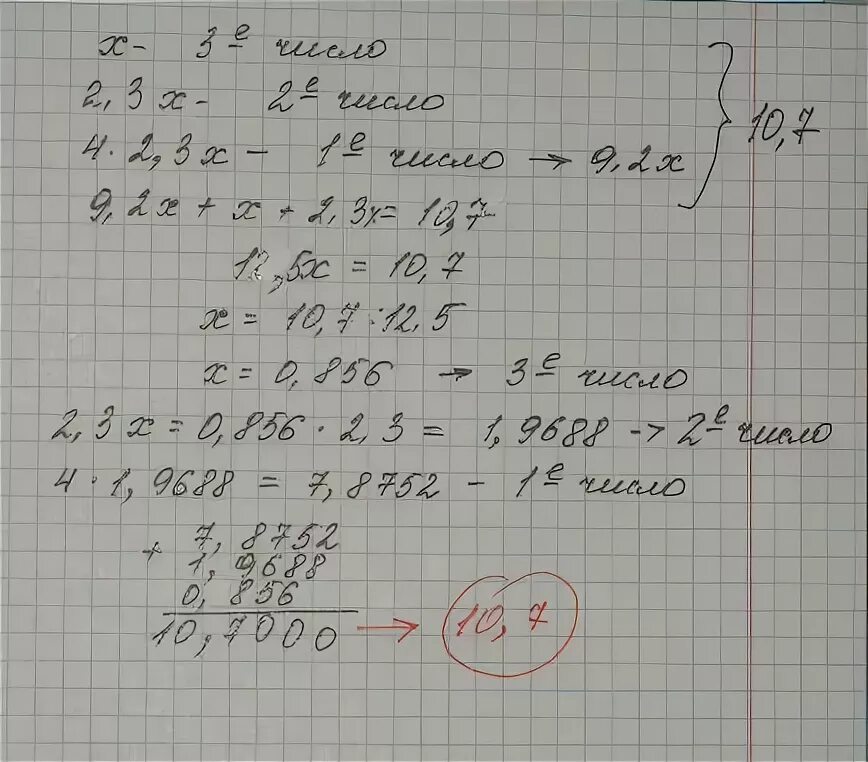 x - 3е число
2,3x - 2е число
4 · 2,3x - 1е число → 9,2x } 10,7
9,2x + x + 2,3x = 10,7
12,5x = 10,7
x = 10,7 : 12.5
x = 0,856 → 3е число
2,3x = 0,856 · 2,3 = 1,9688 → 2е число
4 · 1,9688 = 7,8752 - 1е число
+ 7,8752
1,9688
0,856
10,7000 → 10,7